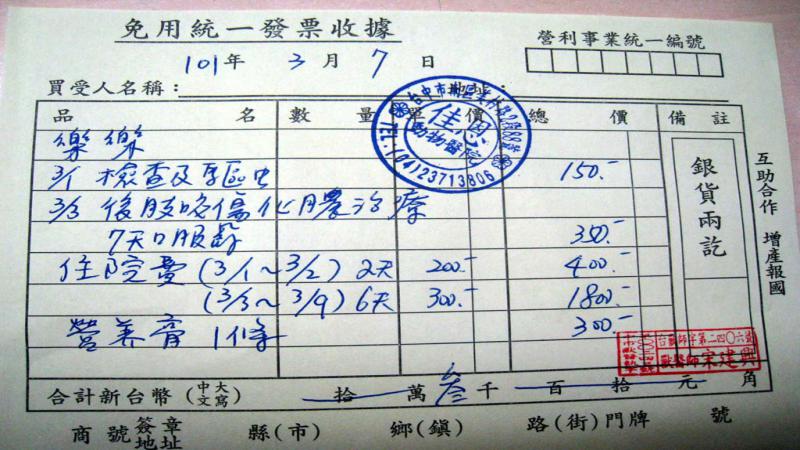 免用統一發票收據
營利事業統一編號
101年 3月 7日
買受人名稱：
品名 數量 單價 總價 備註
樂樂
3/1 檢查及驅虫 150.-
3/3 後肢咬傷化膿治療
7天口服藥 350.-
住院費 (3/1~3/2) 2天 200.- 400.-
(3/3~3/9) 6天 300.- 1800.-
營养膏 1條 300.-
合計新台幣(中文大寫) 拾 萬 叁仟 百 拾 元 角
商號簽章地址 縣(市) 鄉(鎮) 路(街)門牌 號
銀貨兩訖
互助合作 增產報國
佳恩
動物醫院
(04)23713806
獸醫師 宋建興